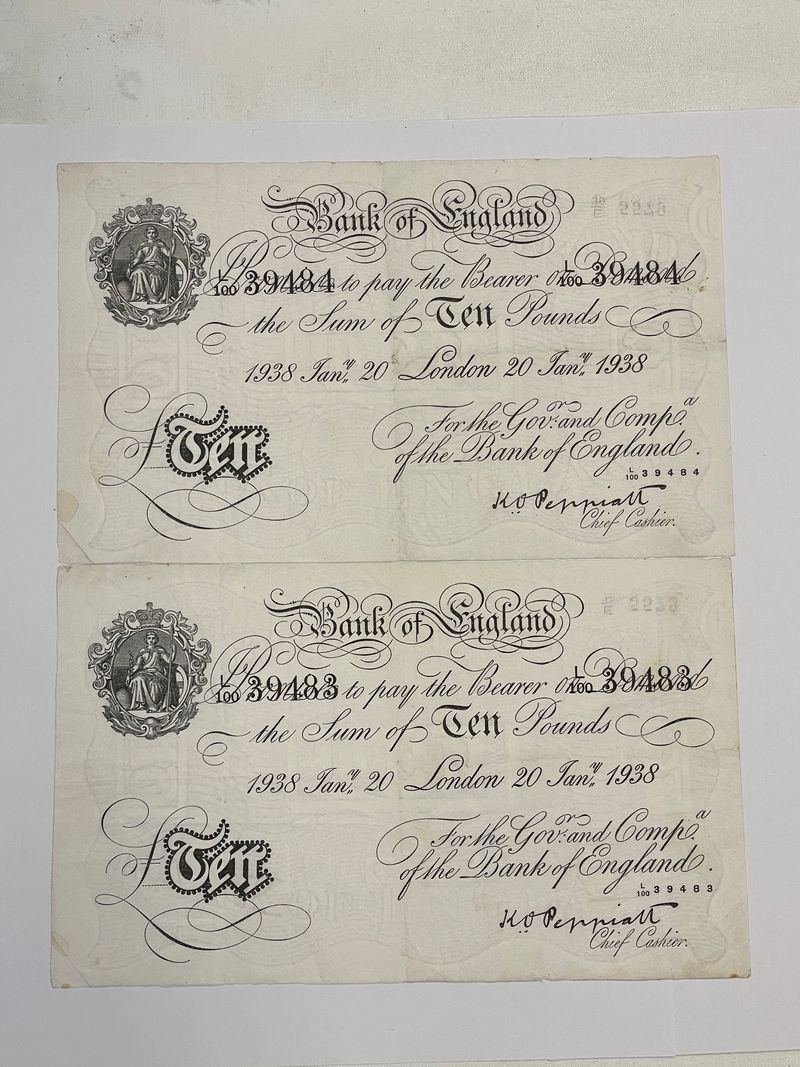 Bank of England
L/100 39484 to pay the Bearer on Demand L/100 39484
the Sum of Ten Pounds
1938 Janʸ 20 London 20 Janʸ 1938
For the Govʳ and Compᵃ
of the Bank of England.
£Ten
L/100 39484
K.O. Peppiatt
Chief Cashier.
Bank of England
L/100 39483 to pay the Bearer on Demand L/100 39483
the Sum of Ten Pounds
1938 Janʸ 20 London 20 Janʸ 1938
For the Govʳ and Compᵃ
of the Bank of England.
£Ten
L/100 39483
K.O. Peppiatt
Chief Cashier.